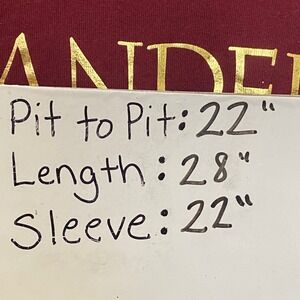 ANDE
Pit to Pit: 22"
Length: 28"
Sleeve: 22"